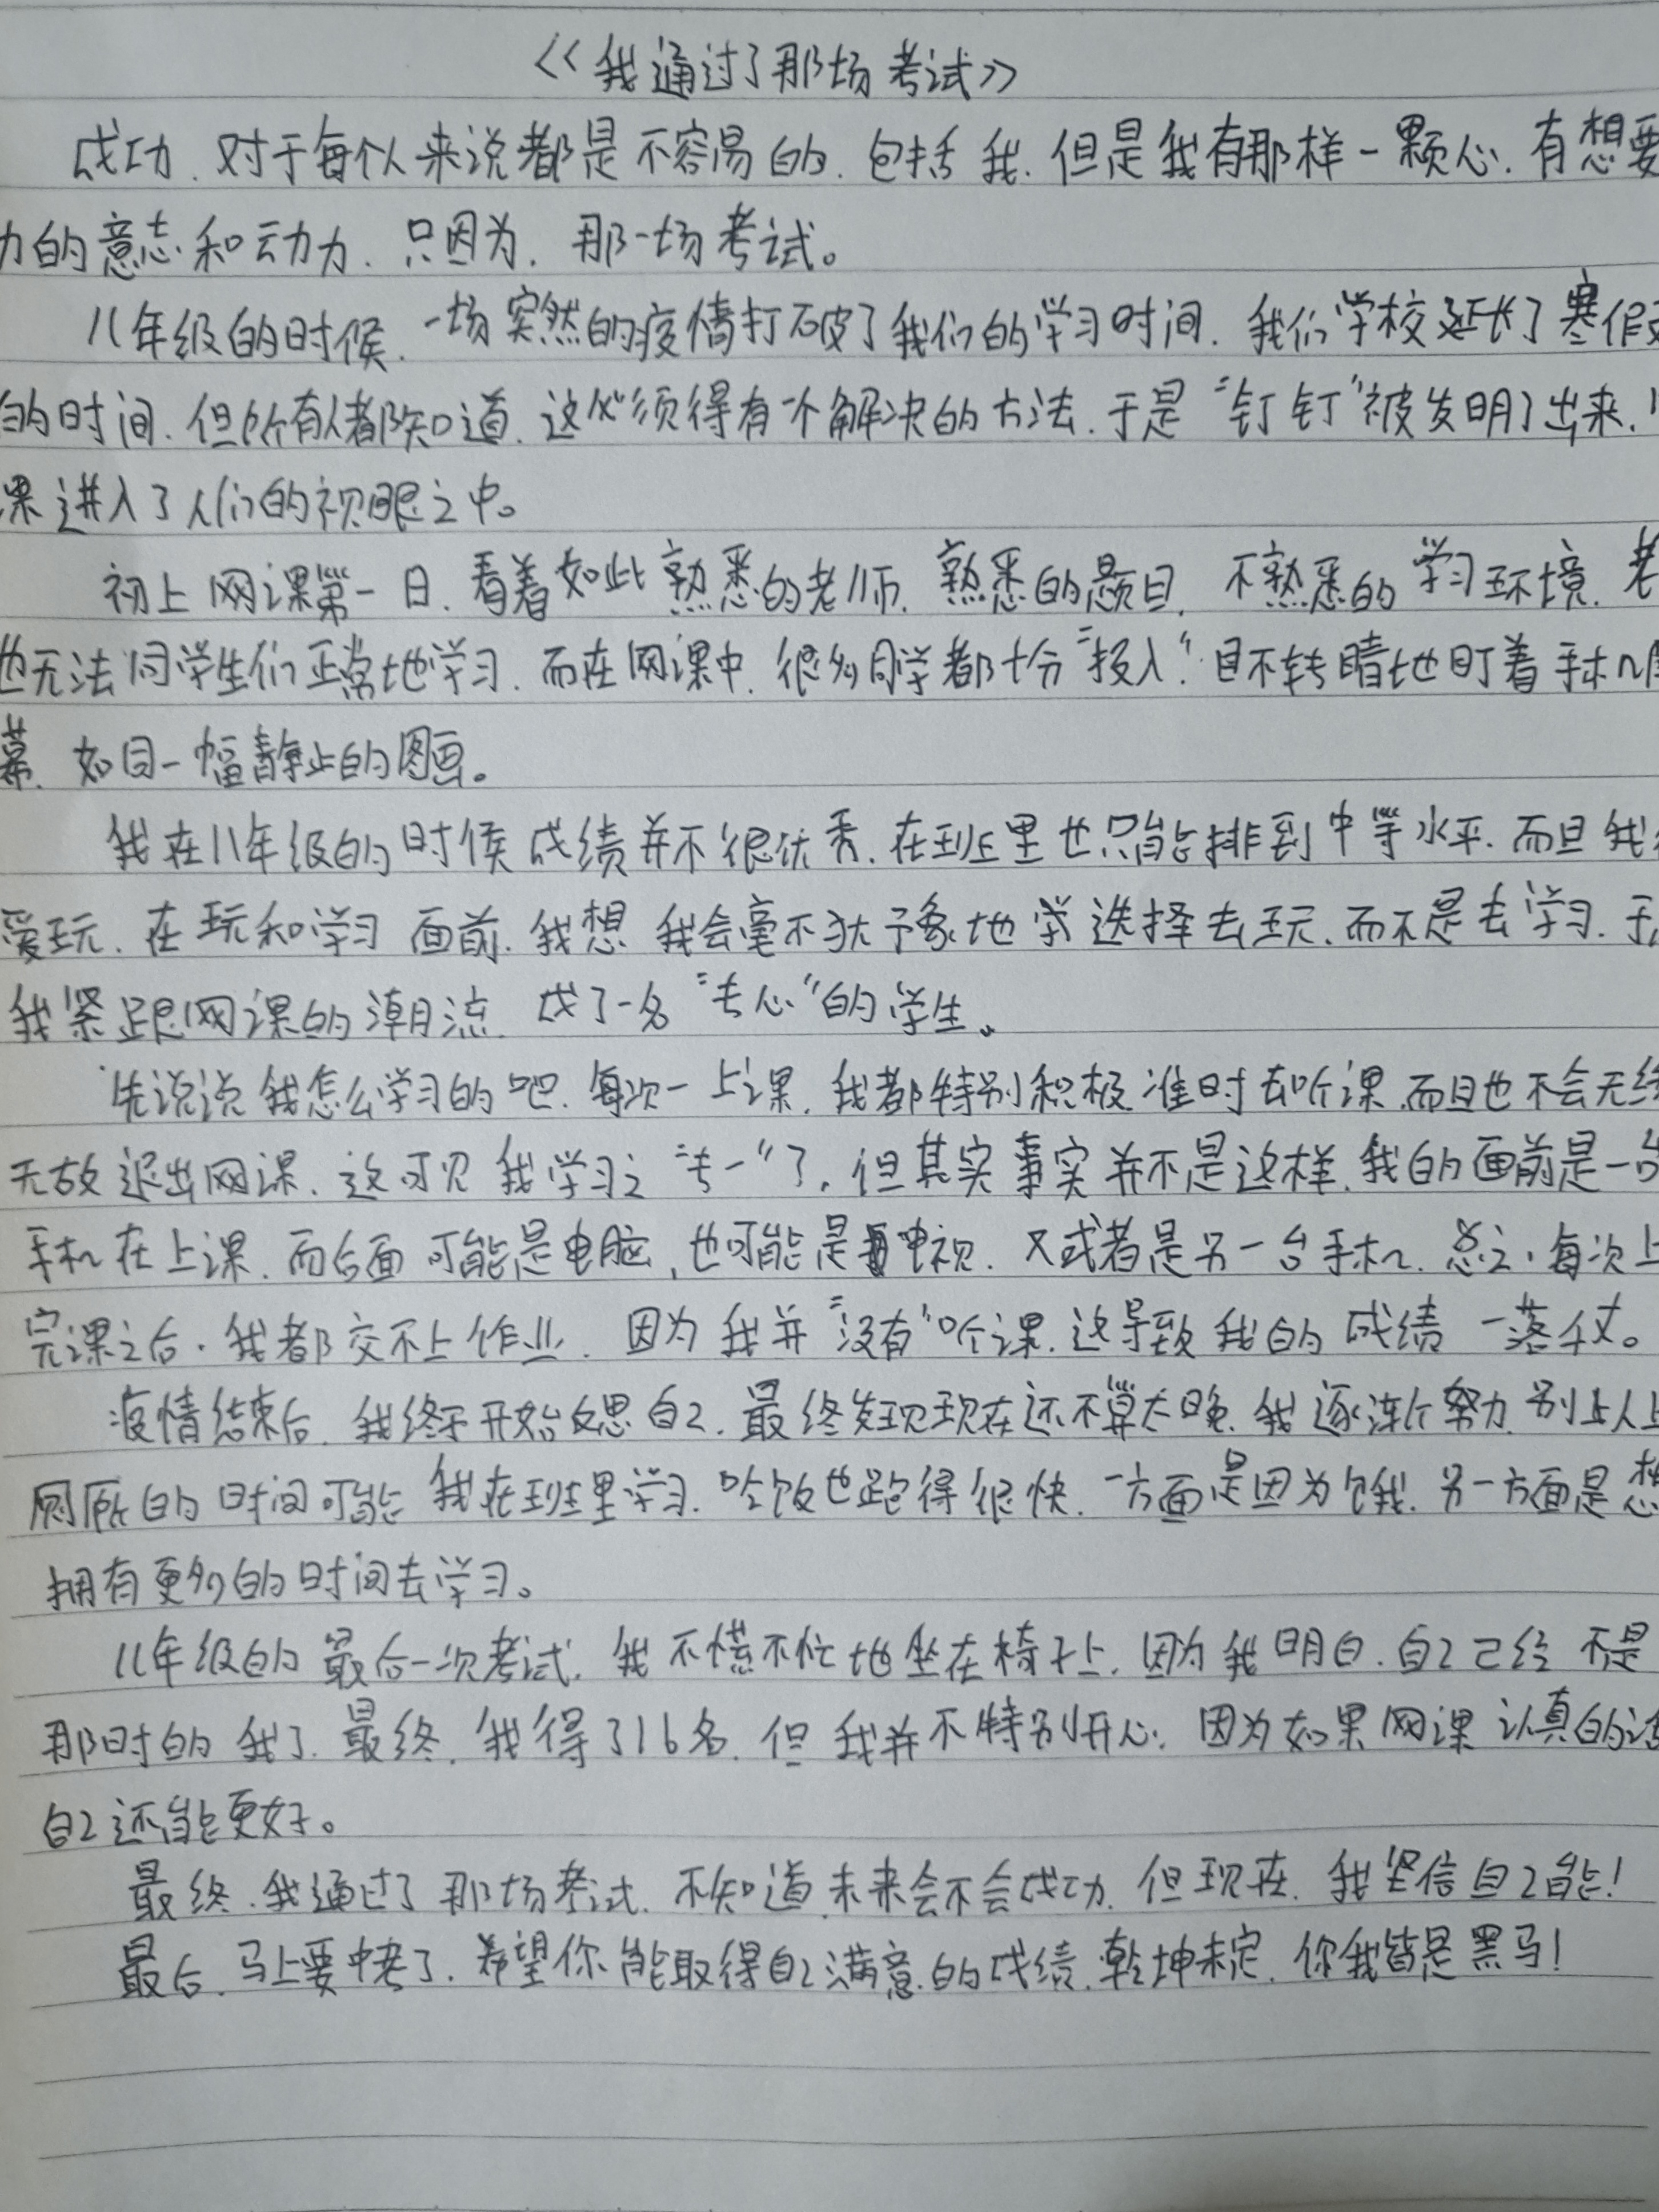 《我通过了那场考试》
成功、对于每个人来说都是不容易的、包括我、但是我有那样一颗心、有想要
力的意志和动力、只因为、那一场考试。
八年级的时候、一场突然的疫情打破了我们的学习时间、我们学校延长了寒假
的时间、但所有人都知道、这必须得有一个解决的方法、于是“钉钉”被发明了出来、
课进入了人们的视眼之中。
初上网课第一日、看着如此熟悉的老师、熟悉的题目、不熟悉的学习环境、老
也无法同学生们正常地学习、而在网课中、很多同学都十分“投入”、目不转睛地盯着手机
幕、如同一幅静止的图画。
我在八年级的时候成绩并不很优秀、在班里也只能排到中等水平、而且我
爱玩、在玩和学习面前、我想我会毫不犹予象地学选择去玩、而不是去学习、于
我紧跟网课的潮流、成了一名“专心”的学生。
先说说我怎么学习的吧、每次一上课、我都特别积极准时去听课、而且也不会无缘
无故退出网课、这可见我学习之“专一”了、但其实事实并不是这样、我的面前是一台
手机在上课、而后面可能是电脑、也可能是电视、又或者是另一台手机、总之、每次上
完课之后、我都交不上作业、因为我并“没有”听课、这导致我的成绩一落千丈。
疫情结束后、我终于开始反思自己、最终发现现在还不算太晚、我逐渐努力、别人上
厕所的时间可能我在班里学习、吃饭也跑得很快、一方面是因为饿、另一方面是想
拥有更多的时间去学习。
八年级的最后一次考试、我不慌不忙地坐在椅子上、因为我明白、自己已经不是
那时的我了、最终、我得了16名、但我并不特别开心、因为如果网课认真的话
自己还能更好。
最终、我通过了那场考试、不知道未来会不会成功、但现在、我坚信自己能！
最后、马上要中考了、希望你能取得自己满意的成绩、乾坤未定、你我皆是黑马！